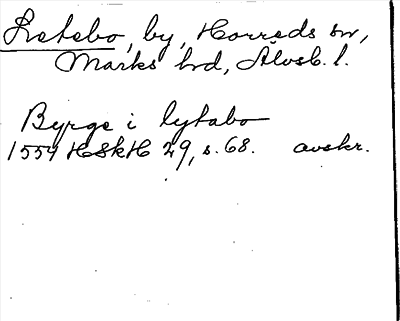 Letebo, by, Horreds sn,
Marks hd, Älvsb. l.
Byrge i lytabo
1559 HSkH 29, s. 68. avskr.